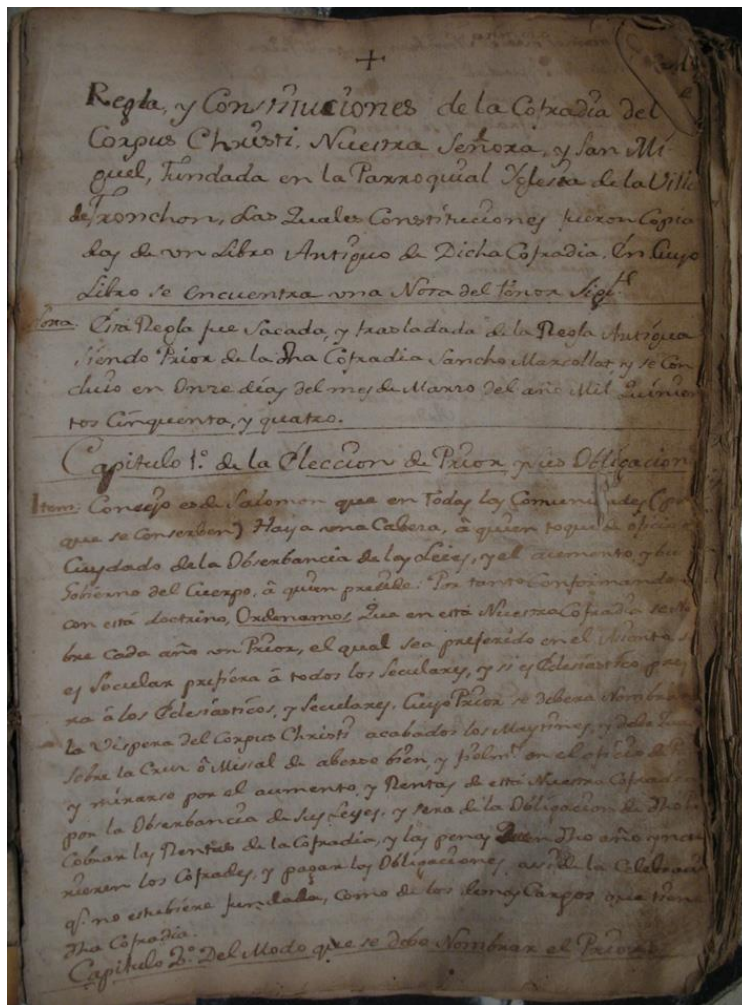 Regla, y Constituciones de la Cofradia del
Corpus Christi, Nuestra Señora, y San Mi-
guel, Fundada en la Parroquial Yglesia de la Villa
de Tronchon, Las Quales Constituciones fueron Copia
das de vn Libro Antiguo de Dicha Cofradia. En Cuyo
Libro se encuentra vna Nota del tenor Sigte
Nota. Esta Regla fue Sacada, y trasladada de la Regla Antigua
siendo Prior de la dha Cofradia Sancho Marzollat y se Con
cluio en Onze dias del mes de Marzo del año Mil Quinien
tos Cinquenta, y quatro.
Capitulo 1º. de la Eleccion de Prior, y sus Obligacion
Item: Consejo es de Salomon que en Todas las Comunidades (para
que se Conserben) Haya vna Cabeza, â quien toque de oficio el
Cuydado de la Obserbancia de las Leies, y el aumento, y bue
Gobierno del Cuerpo, â quien preside: Por tanto Conformandon
con esta doctrina, Ordenamos Que en esta Nuestra Cofradia se No
bre cada año vn Prior, el qual sea preferido en el Asiento, si
es Secular prefiera â todos los Seculares, y si es Eclesiastico prefi
ra â los Eclesiasticos, y Seculares. Cuyo Prior se debera Nombrar en
la Vispera del Corpus Christi acabados los Maytines, y debe Jurar
sobre la Cruz ô Missal de aberse bien, y fielmte en el oficio de Pr
y mirarse por el aumento, y Rentas de esta Nuestra Cofradia
por la Obserbancia de sus Leyes. y sera de la Obligacion de dho
Cobrar las Rentas de la Cofradia, y las penas en dho año yncu
rrieren los Cofrades, y pagar las Obligaciones, asi de la Celebracio
q. no estubiere fundada, Como de los demas Cargos que tiene
dha Cofradia.
Capitulo 2º. Del Modo que se debe Nombrar el Prior